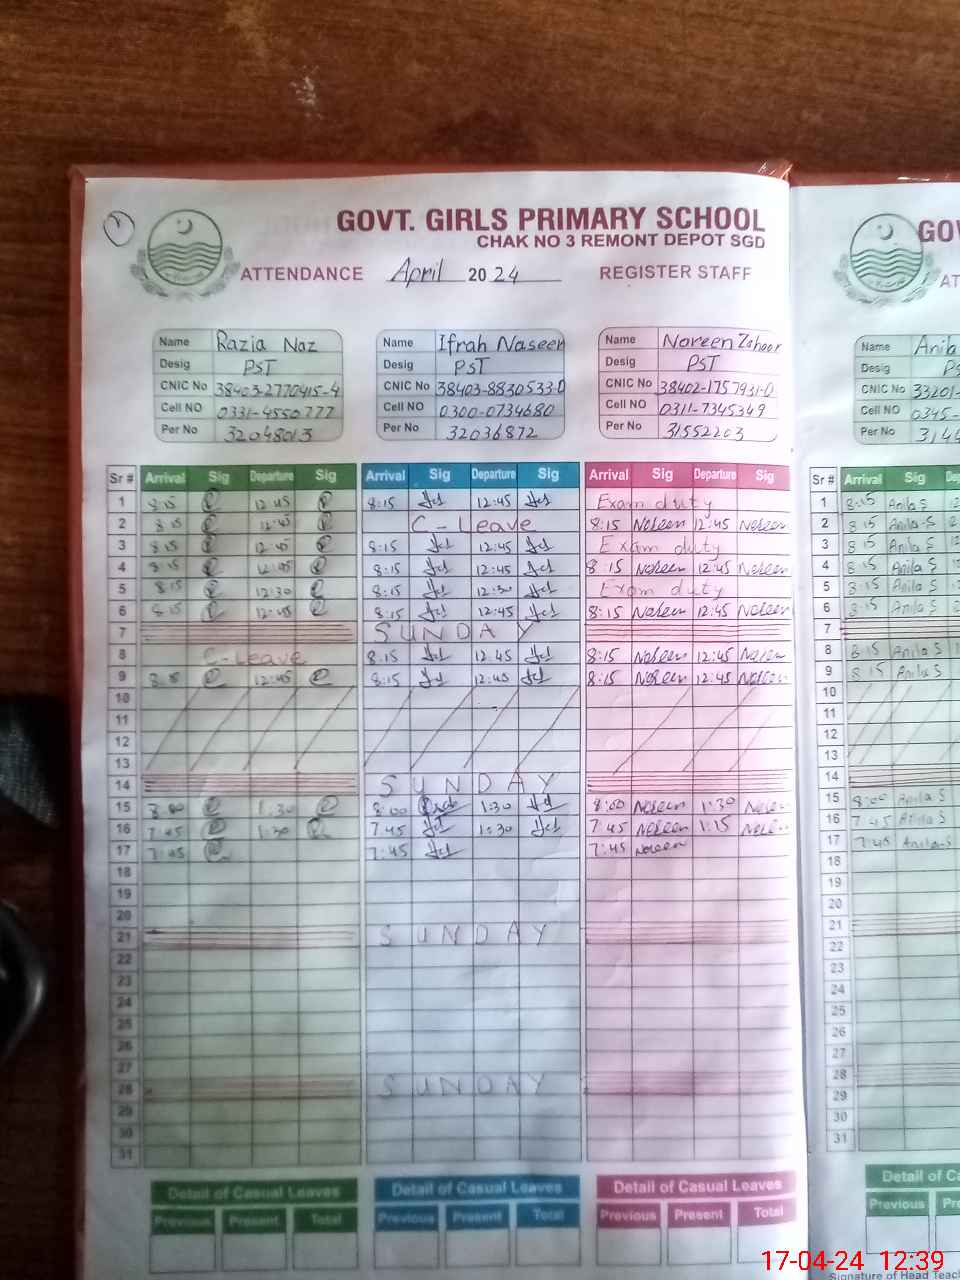 GOVT. GIRLS PRIMARY SCHOOL
CHAK NO 3 REMONT DEPOT SGD
ATTENDANCE April 2024 REGISTER STAFF
Name Razia Naz
Desig PST
CNIC No 38403-2770415-4
Cell NO 0331-4550777
Per No 32048013
Name Ifrah Naseer
Desig PST
CNIC No 38403-8830533-0
Cell NO 0300-0734680
Per No 32036872
Name Noreen Zahoor
Desig PST
CNIC No 38402-1757931-0
Cell NO 0311-7345349
Per No 31552203
Sr # Arrival Sig Departure Sig Arrival Sig Departure Sig Arrival Sig Departure Sig
1 8:15 12:45 8:15 12:45 Exam duty
2 8:15 12:45 C-Leave 8:15 Noreen 12:45 Noreen
3 8:15 12:45 8:15 12:45 Exam duty
4 8:15 12:45 8:15 12:45 8:15 Noreen 12:45 Noreen
5 8:15 12:30 8:15 12:30 Exam duty
6 8:15 12:45 8:15 12:45 8:15 Noreen 12:45 Noreen
7 SUNDAY
8 C-Leave 8:15 12:45 8:15 Noreen 12:45 Noreen
9 8:15 12:45 8:15 12:45 8:15 Noreen 12:45 Noreen
10
11
12
13
14 SUNDAY
15 8:00 1:30 8:00 1:30 8:00 Noreen 1:30 Noreen
16 7:45 1:30 7:45 1:30 7:45 Noreen 1:15 Noreen
17 7:45 7:45 7:45 Noreen
18
19
20
21 SUNDAY
22
23
24
25
26
27
28 SUNDAY
29
30
31
Detail of Casual Leaves Detail of Casual Leaves Detail of Casual Leaves
Previous Present Total Previous Present Total Previous Present Total
GOV
AT
Name Anila
Desig PS
CNIC No 33201-
Cell NO 0345-
Per No
Sr # Arrival Sig De
1 8:15 Anila S
2 8:15 Anila-S
3 8:15 Anila S
4 8:15 Anila S
5 8:15 Anila S
6 8:15 Anila S
7
8 8:15 Anila S
9 8:15 Anila S
10
11
12
13
14
15 8:00 Anila S
16 7:45 Anila S
17 7:45 Anila-S
18
19
20
21
22
23
24
25
26
27
28
29
30
31
Detail of Ca
Previous Pre
Signature of Head Teac
17-04-24 12:39